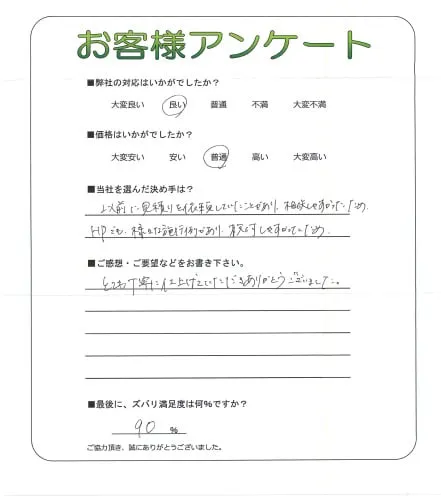 お客様アンケート
■弊社の対応はいかがでしたか?
大変良い 良い 普通 不満 大変不満
■価格はいかがでしたか?
大変安い 安い 普通 高い 大変高い
■当社を選んだ決め手は?
以前に見積りを依頼していたことがあり、相談しやすかったため
HPでも、様々な施行例があり、検討しやすかったため
■ご感想・ご要望などをお書き下さい。
とても丁寧に仕上げていただきありがとうございました。
■最後に、ズバリ満足度は何%ですか?
90 %
ご協力頂き、誠にありがとうございました。